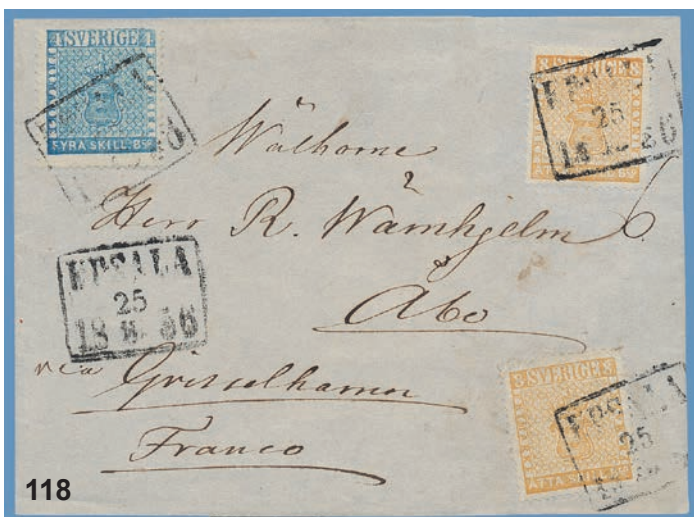 4 SVERIGE 4
FYRA SKILL. Bco
8 SVERIGE 8
UPSALA
25
Wälborne
Herr R. Wärnhjelm
Åbo
UPSALA
25
18 56
via Grisselhamn
Franco
8 SVERIGE 8
ÅTTA SKILL. Bco
UPSALA
25
118